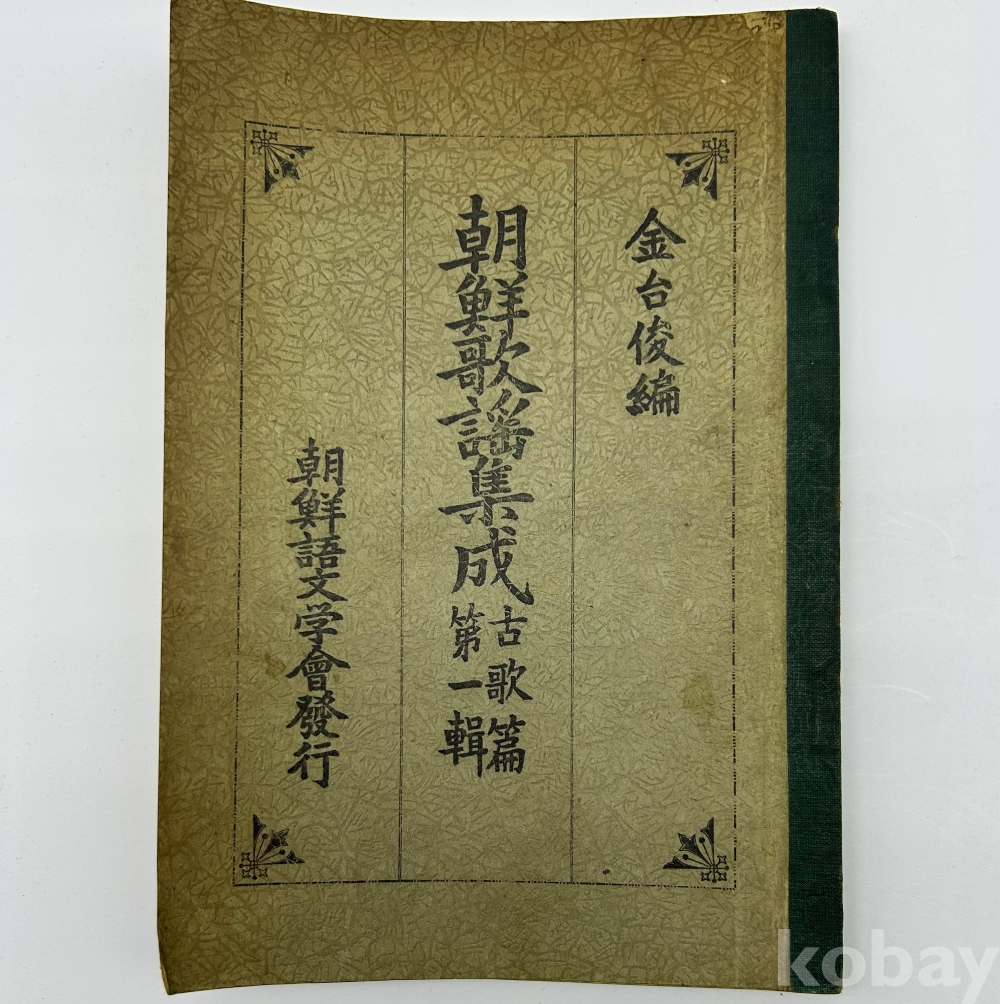 金台俊編
朝鮮歌謡集成
古歌篇
第一輯
朝鮮語文学會發行
kobay